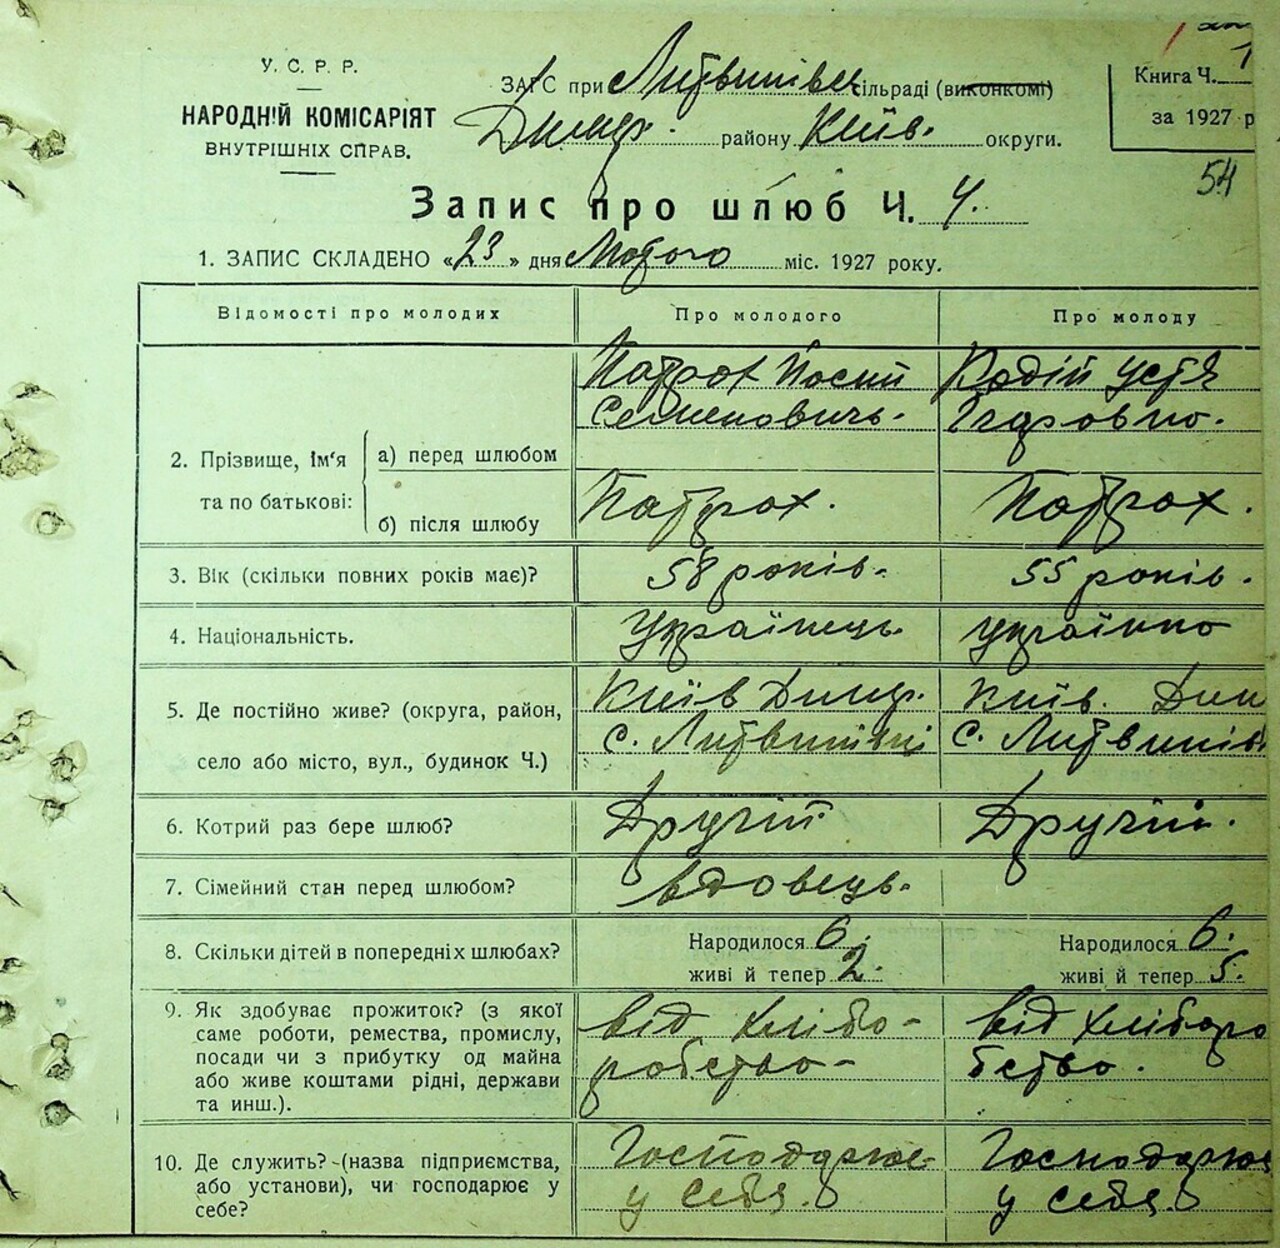 У. С. Р. Р.
НАРОДНІЙ КОМІСАРІЯТ
ВНУТРІШНІХ СПРАВ.
ЗАГС при Литвинівск сільраді (виконкомі)
Димер. району Київ. округи.
Книга Ч. 1
за 1927 р
54
Запис про шлюб Ч. 4.
1. ЗАПИС СКЛАДЕНО «23» дня Лютого міс. 1927 року.
Відомості про молодих Про молодого Про молоду
2. Прізвище, ім'я та по батькові:
а) перед шлюбом
Патрох Йосип Кодій Устя
Семеновичь. Ігаровна.
б) після шлюбу Патрох. Патрох.
3. Вік (скільки повних років має)? 58 років. 55 років.
4. Національність. Українець. українка
5. Де постійно живе? (округа, район, Київ Димер. Київ. Дим
село або місто, вул., будинок Ч.) с. Литвинівці с. Литвинів
6. Котрий раз бере шлюб? Другій Другій.
7. Сімейний стан перед шлюбом? вдовець.
8. Скільки дітей в попередніх шлюбах? Народилося 6. Народилося 6.
живі й тепер 2. живі й тепер 5.
9. Як здобуває прожиток? (з якої
саме роботи, ремества, промислу,
посади чи з прибутку од майна
або живе коштами рідні, держави
та инш.).
від хлібо- від хліборо
робства- бства.
10. Де служить? (назва підприємства,
або установи), чи господарює у
себе?
Господарює Господарює
у себя. у себя.